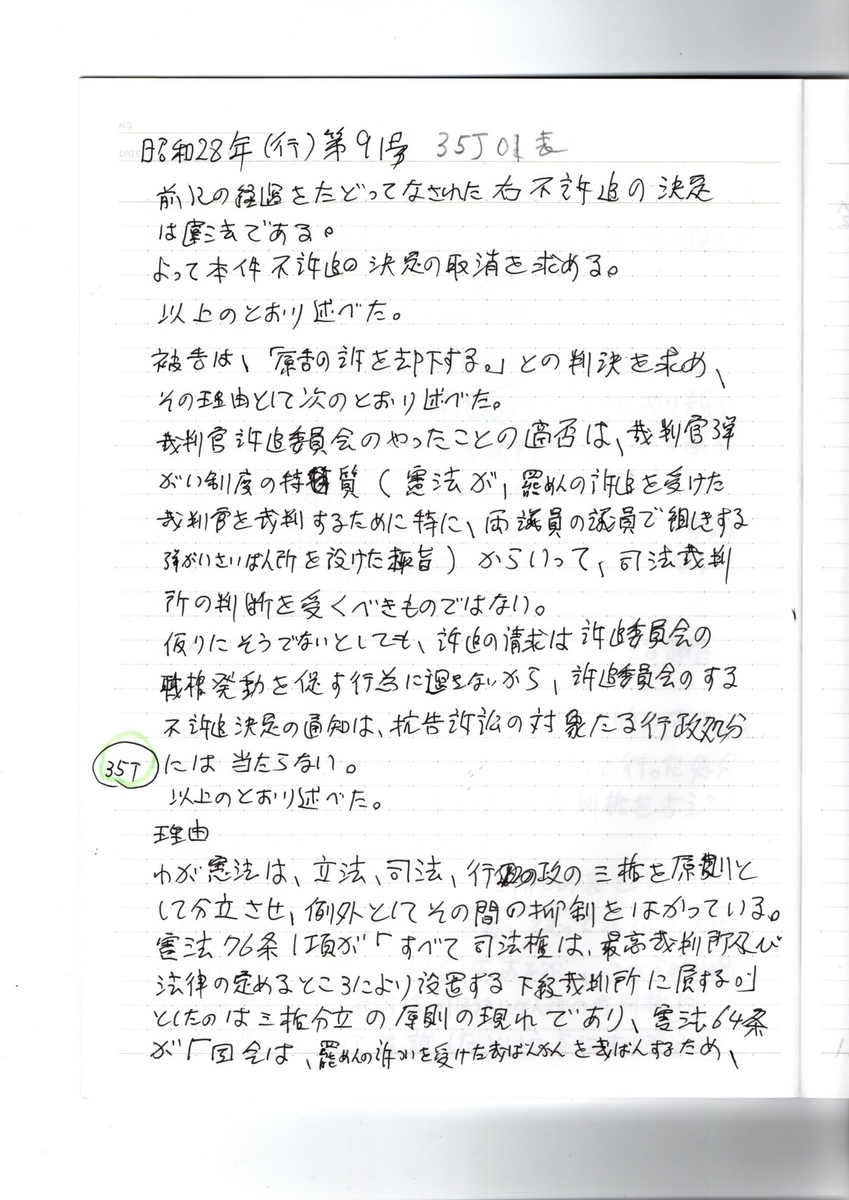 NO.
DATE
昭和28年(行)第91号 35J01表
前記の経過をたどってなされた右不訴追の決定
は違法である。
よって本件不訴追の決定の取消を求める。
以上のとおり述べた。
被告は、「原告の訴を却下する。」との判決を求め、
その理由として次のとおり述べた。
裁判官訴追委員会のやったことの適否は、裁判官弾
がい制度の特質(憲法が、罷めんの訴追を受けた
裁判官を裁判するために特に、両議員の議員で組しきする
弾がいさいばん所を設けた趣旨)からいって、司法裁判
所の判断を受くべきものではない。
仮りにそうでないとしても、訴追の請求は訴追委員会の
職権発動を促す行為に過ぎないから、訴追委員会のする
不訴追決定の通知は、抗告訴訟の対象たる行政処分
35J
には当たらない。
以上のとおり述べた。
理由
わが憲法は、立法、司法、行政の三権を原則と
して分立させ、例外としてその間の抑制をはかっている。
憲法76条1項が「すべて司法権は、最高裁判所及び
法律の定めるところにより設置する下級裁判所に属する。」
としたのは三権分立の原則の現れであり、憲法64条
が「国会は、罷めんの訴ついを受けたさいばんかんをさいばんするため、